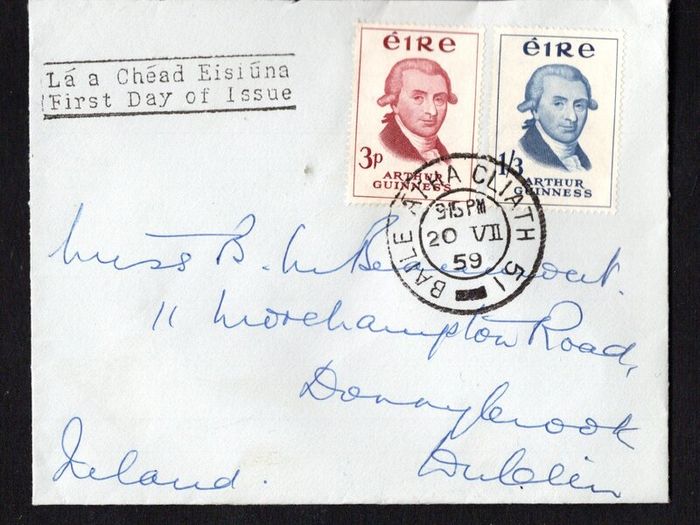 Lá a Chéad Eisiúna
First Day of Issue
éIRe
3p
ARTHUR
GUINNESS
éIRe
1/3
ARTHUR
GUINNESS
BAILE ÁTHA CLIATH 51
9 15 PM
20 VII
59
Miss B.
11 Morehampton Road,
Donnybrook
Dublin
Ireland.